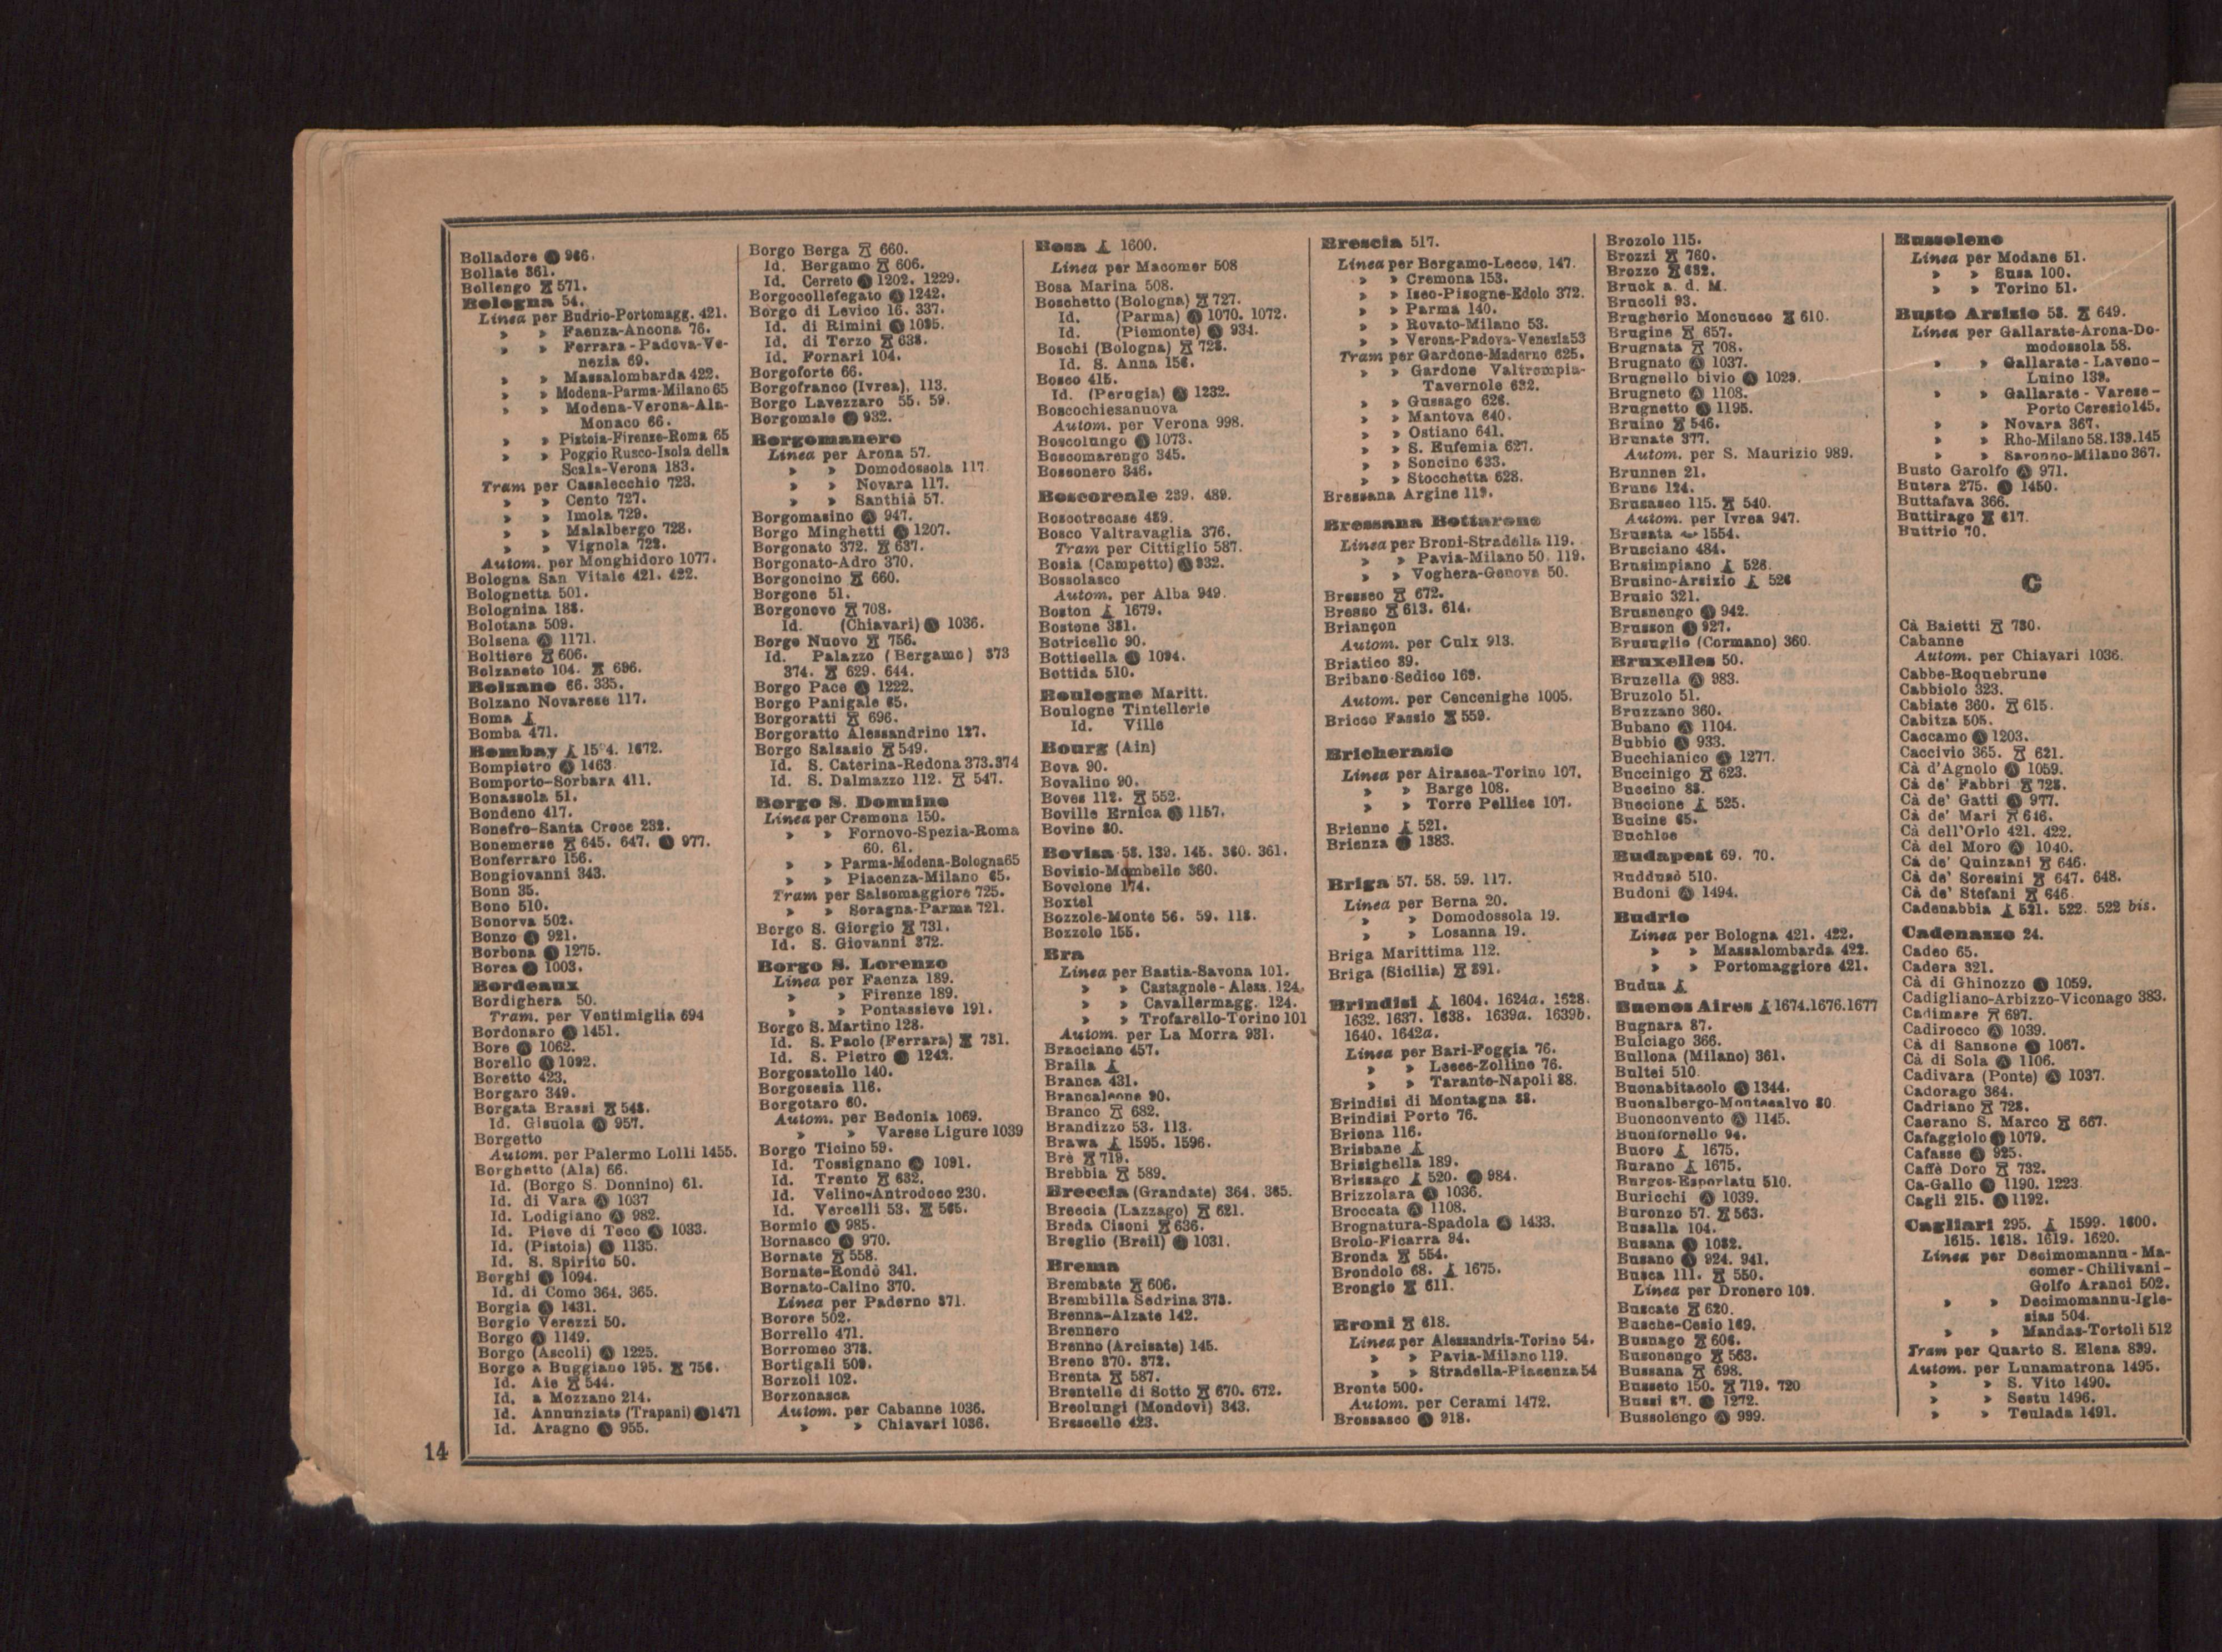 Bolladore Ⓐ 966.
Bollate 361.
Bollengo 571.
Bologna 54.
Linea per Budrio-Portomagg. 421.
» » Faenza-Ancona 76.
» » Ferrara - Padova-Ve-
nezia 69.
» » Massalombarda 422.
» » Modena-Parma-Milano 65
» » Modena-Verona-Ala-
Monaco 66.
» » Pistoia-Firenze-Roma 65
» » Poggio Rusco-Isola della
Scala-Verona 183.
Tram per Casalecchio 723.
» » Cento 727.
» » Imola 729.
» » Malalbergo 728.
» » Vignola 722.
Autom. per Monghidoro 1077.
Bologna San Vitale 421. 422.
Bolognetta 501.
Bolognina 188.
Bolotana 509.
Bolsena Ⓐ 1171.
Boltiere 606.
Bolzaneto 104. 696.
Bolzano 66. 335.
Bolzano Novarese 117.
Boma
Bomba 471.
Bombay 15 4. 1672.
Bompietro Ⓐ 1463
Bomporto-Sorbara 411.
Bonassola 51.
Bondeno 417.
Bonefro-Santa Croce 232.
Bonemerse 645. 647. Ⓐ 977.
Bonferraro 156.
Bongiovanni 343.
Bonn 35.
Bono 510.
Bonorva 502.
Bonzo Ⓐ 921.
Borbona Ⓐ 1275.
Borca Ⓐ 1003.
Bordeaux
Bordighera 50.
Tram. per Ventimiglia 694
Bordonaro Ⓐ 1451.
Bore Ⓐ 1062.
Borello Ⓐ 1092.
Boretto 423.
Borgaro 349.
Borgata Brassi 548.
Id. Gisuola Ⓐ 957.
Borgetto
Autom. per Palermo Lolli 1455.
Borghetto (Ala) 66.
Id. (Borgo S. Donnino) 61.
Id. di Vara Ⓐ 1037
Id. Lodigiano Ⓐ 982.
Id. Pieve di Teco Ⓐ 1033.
Id. (Pistoia) Ⓐ 1135.
Id. S. Spirito 50.
Borghi Ⓐ 1094.
Id. di Como 364. 365.
Borgia Ⓐ 1431.
Borgio Verezzi 50.
Borgo Ⓐ 1149.
Borgo (Ascoli) Ⓐ 1225.
Borgo a Buggiano 195. 756.
Id. Aie 544.
Id. a Mozzano 214.
Id. Annunziata (Trapani) Ⓐ 1471
Id. Aragno Ⓐ 955.
Borgo Berga 660.
Id. Bergamo 606.
Id. Cerreto Ⓐ 1202. 1229.
Borgocollefegato Ⓐ 1242.
Borgo di Levico 16. 337.
Id. di Rimini Ⓐ 1095.
Id. di Terzo 638.
Id. Fornari 104.
Borgoforte 66.
Borgofranco (Ivrea). 113.
Borgo Lavezzaro 55. 59.
Borgomale Ⓐ 932.
Borgomanero
Linea per Arona 57.
» » Domodossola 117
» » Novara 117.
» » Santhià 57.
Borgomasino Ⓐ 947.
Borgo Minghetti Ⓐ 1207.
Borgonato 372. 637.
Borgonato-Adro 370.
Borgoncino 660.
Borgone 51.
Borgonovo 708.
Id. (Chiavari) Ⓐ 1036.
Borgo Nuovo 756.
Id. Palazzo (Bergamo) 373
374. 629. 644.
Borgo Pace Ⓐ 1222.
Borgo Panigale 65.
Borgoratti 696.
Borgoratto Alessandrino 127.
Borgo Salsasio 549.
Id. S. Caterina-Redona 373.374
Id. S. Dalmazzo 112. 547.
Borgo S. Donnino
Linea per Cremona 150.
» » Fornovo-Spezia-Roma
60. 61.
» » Parma-Modena-Bologna 65
» » Piacenza-Milano 65.
Tram per Salsomaggiore 725.
» » Soragna-Parma 721.
Borgo S. Giorgio 731.
Id. S. Giovanni 372.
Borgo S. Lorenzo
Linea per Faenza 189.
» » Firenze 189.
» » Pontassieve 191.
Borgo S. Martino 128.
Id. S. Paolo (Ferrara) 731.
Id. S. Pietro Ⓐ 1242.
Borgosatollo 140.
Borgosesia 116.
Borgotaro 60.
Autom. per Bedonia 1069.
» » Varese Ligure 1039
Borgo Ticino 59.
Id. Tossignano Ⓐ 1091.
Id. Trento 632.
Id. Velino-Antrodoco 230.
Id. Vercelli 53. 565.
Bormio Ⓐ 985.
Bornasco Ⓐ 970.
Bornate 558.
Bornate-Rondò 341.
Bornato-Calino 370.
Linea per Paderno 371.
Borore 502.
Borrello 471.
Borromeo 378.
Bortigali 509.
Borzoli 102.
Borzonasca
Autom. per Cabanne 1036.
» » Chiavari 1036.
Bosa 1600.
Linea per Macomer 508
Bosa Marina 508.
Boschetto (Bologna) 727.
Id. (Parma) Ⓐ 1070. 1072.
Id. (Piemonte) Ⓐ 934.
Boschi (Bologna) 728.
Id. S. Anna 156.
Bosco 415.
Id. (Perugia) Ⓐ 1232.
Boscochiesanuova
Autom. per Verona 998.
Boscolungo Ⓐ 1073.
Boscomarengo 345.
Bosconero 346.
Boscoreale 239. 489.
Boscotrecase 489.
Bosco Valtravaglia 376.
Tram per Cittiglio 587.
Bosia (Campetto) Ⓐ 932.
Bossolasco
Autom. per Alba 949.
Boston 1679.
Bostone 381.
Botricello 90.
Botticella Ⓐ 1094.
Bottida 510.
Boulogne Maritt.
Boulogne Tintellerie
Id. Ville
Bourg (Ain)
Bova 90.
Bovalino 90.
Boves 112. 552.
Boville Ernica Ⓐ 1157.
Bovino 80.
Bovisa 58. 139. 145. 360. 361.
Bovisio-Mombello 360.
Bovolone 174.
Boxtel
Bozzole-Monte 56. 59. 118.
Bozzolo 155.
Bra
Linea per Bastia-Savona 101.
» » Castagnole - Aless. 124.
» » Cavallermagg. 124.
» » Trofarello-Torino 101
Autom. per La Morra 931.
Bracciano 457.
Braila
Branca 431.
Brancaleone 90.
Branco 682.
Brandizzo 53. 113.
Brawa 1595. 1596.
Brè 719.
Brebbia 589.
Breccia (Grandate) 364. 365.
Breccia (Lazzago) 621.
Breda Cisoni 636.
Breglio (Breil) Ⓐ 1031.
Brema
Brembate 606.
Brembilla Sedrina 378.
Brenna-Alzate 142.
Brennero
Brenno (Arcisate) 145.
Breno 370. 372.
Brenta 587.
Brentelle di Sotto 670. 672.
Breolungi (Mondovì) 343.
Brescello 423.
Brescia 517.
Linea per Bergamo-Lecco, 147.
» » Cremona 153.
» » Iseo-Pisogne-Edolo 372.
» » Parma 140.
» » Rovato-Milano 53.
» » Verona-Padova-Venezia 53
Tram per Gardone-Maderno 625.
» » Gardone Valtrompia-
Tavernole 632.
» » Gussago 626.
» » Mantova 640.
» » Ostiano 641.
» » S. Eufemia 627.
» » Soncino 633.
» » Stocchetta 628.
Bressana Argine 119.
Bressana Bottarone
Linea per Broni-Stradella 119.
» » Pavia-Milano 50. 119.
» » Voghera-Genova 50.
Bresseo 672.
Bresso 613. 614.
Briançon
Autom. per Oulx 913.
Briatico 89.
Bribano-Sedico 169.
Autom. per Cencenighe 1005.
Bricco Fassio 559.
Bricherasio
Linea per Airasca-Torino 107.
» » Barge 108.
» » Torre Pellice 107.
Brienno 521.
Brienza Ⓐ 1383.
Briga 57. 58. 59. 117.
Linea per Berna 20.
» » Domodossola 19.
» » Losanna 19.
Briga Marittima 112.
Briga (Sicilia) 891.
Brindisi 1604. 1624a. 1628.
1632. 1637. 1638. 1639a. 1639b.
1640. 1642a.
Linea per Bari-Foggia 76.
» » Lecce-Zollino 76.
» » Taranto-Napoli 88.
Brindisi di Montagna 88.
Brindisi Porto 76.
Briona 116.
Brisbane
Brisighella 189.
Brissago 520. Ⓐ 984.
Brizzolara Ⓐ 1036.
Broccata Ⓐ 1108.
Brognatura-Spadola Ⓐ 1433.
Brolo-Ficarra 94.
Bronda 554.
Brondolo 68. 1675.
Brongio 611.
Broni 618.
Linea per Alessandria-Torino 54.
» » Pavia-Milano 119.
» » Stradella-Piacenza 54
Bronte 500.
Autom. per Cerami 1472.
Brossasco Ⓐ 918.
Brozolo 115.
Brozzi 760.
Brozzo 632.
Bruck a. d. M.
Brucoli 93.
Brugherio Moncucco 610.
Brugine 657.
Brugnata 708.
Brugnato Ⓐ 1037.
Brugnello bivio Ⓐ 1029.
Brugneto Ⓐ 1108.
Brugnetto Ⓐ 1195.
Bruino 546.
Brunate 377.
Autom. per S. Maurizio 989.
Brunnen 21.
Bruno 124.
Brusasco 115. 540.
Autom. per Ivrea 947.
Brusata 1554.
Brusciano 484.
Brusimpiano 526.
Brusino-Arsizio 526
Brusio 321.
Brusnengo Ⓐ 942.
Brusson Ⓐ 927.
Brusuglio (Cormano) 360.
Bruxelles 50.
Bruzella Ⓐ 983.
Bruzolo 51.
Bruzzano 360.
Bubano Ⓐ 1104.
Bubbio Ⓐ 933.
Bucchianico Ⓐ 1277.
Buccinigo 623.
Buccino 88.
Buccione 525.
Bucine 65.
Buchloe
Budapest 69. 70.
Buddusò 510.
Budoni Ⓐ 1494.
Budrio
Linea per Bologna 421. 422.
» » Massalombarda 422.
» » Portomaggiore 421.
Budua
Buenos Aires 1674.1676.1677
Bugnara 87.
Bulciago 366.
Bullona (Milano) 361.
Bultei 510.
Buonabitacolo Ⓐ 1344.
Buonalbergo-Montecalvo 80.
Buonconvento Ⓐ 1145.
Buonfornello 94.
Buoro 1675.
Burano 1675.
Burgos-Esporlatu 510.
Buricchi Ⓐ 1039.
Buronzo 57. 563.
Busalla 104.
Busana Ⓐ 1082.
Busano Ⓐ 924. 941.
Busca 111. 550.
Linea per Dronero 109.
Buscate 620.
Busche-Cesio 169.
Busnago 606.
Busonengo 563.
Bussana 698.
Busseto 150. 719. 720
Bussi 87. Ⓐ 1272.
Bussolengo Ⓐ 999.
Bussoleno
Linea per Modane 51.
» » Susa 100.
» » Torino 51.
Busto Arsizio 58. 649.
Linea per Gallarate-Arona-Do-
modossola 58.
» » Gallarate - Laveno-
Luino 139.
» » Gallarate - Varese-
Porto Ceresio 145.
» » Novara 367.
» » Rho-Milano 58.139.145
» » Saronno-Milano 367.
Busto Garolfo Ⓐ 971.
Butera 275. Ⓐ 1450.
Buttafava 366.
Buttirago 617.
Buttrio 70.
C
Cà Baietti 730.
Cabanne
Autom. per Chiavari 1036.
Cabbe-Roquebrune
Cabbiolo 323.
Cabiate 360. 615.
Cabitza 505.
Caccamo Ⓐ 1203.
Caccivio 365. 621.
Cà d'Agnolo Ⓐ 1059.
Cà de' Fabbri 728.
Cà de' Gatti Ⓐ 977.
Cà de' Mari 646.
Cà dell'Orlo 421. 422.
Cà del Moro Ⓐ 1040.
Cà de' Quinzani 646.
Cà de' Soresini 647. 648.
Cà de' Stefani 646.
Cadenabbia 521. 522. 522 bis.
Cadenazzo 24.
Cadeo 65.
Cadera 321.
Cà di Ghinozzo Ⓐ 1059.
Cadigliano-Arbizzo-Viconago 383.
Cadimare 697.
Cadirocco Ⓐ 1039.
Cà di Sansone Ⓐ 1067.
Cà di Sola Ⓐ 1106.
Cadivara (Ponte) Ⓐ 1037.
Cadorago 364.
Cadriano 728.
Caerano S. Marco 667.
Cafaggiolo Ⓐ 1079.
Cafasse Ⓐ 925.
Caffè Doro 732.
Ca-Gallo Ⓐ 1190. 1223
Cagli 215. Ⓐ 1192.
Cagliari 295. 1599. 1600.
1615. 1618. 1619. 1620.
Linea per Decimomannu - Ma-
comer - Chilivani -
Golfo Aranci 502.
» » Decimomannu-Igle-
sias 504.
» » Mandas-Tortolì 512
Tram per Quarto S. Elena 899.
Autom. per Lunamatrona 1495.
» » S. Vito 1490.
» » Sestu 1496.
» » Teulada 1491.
14